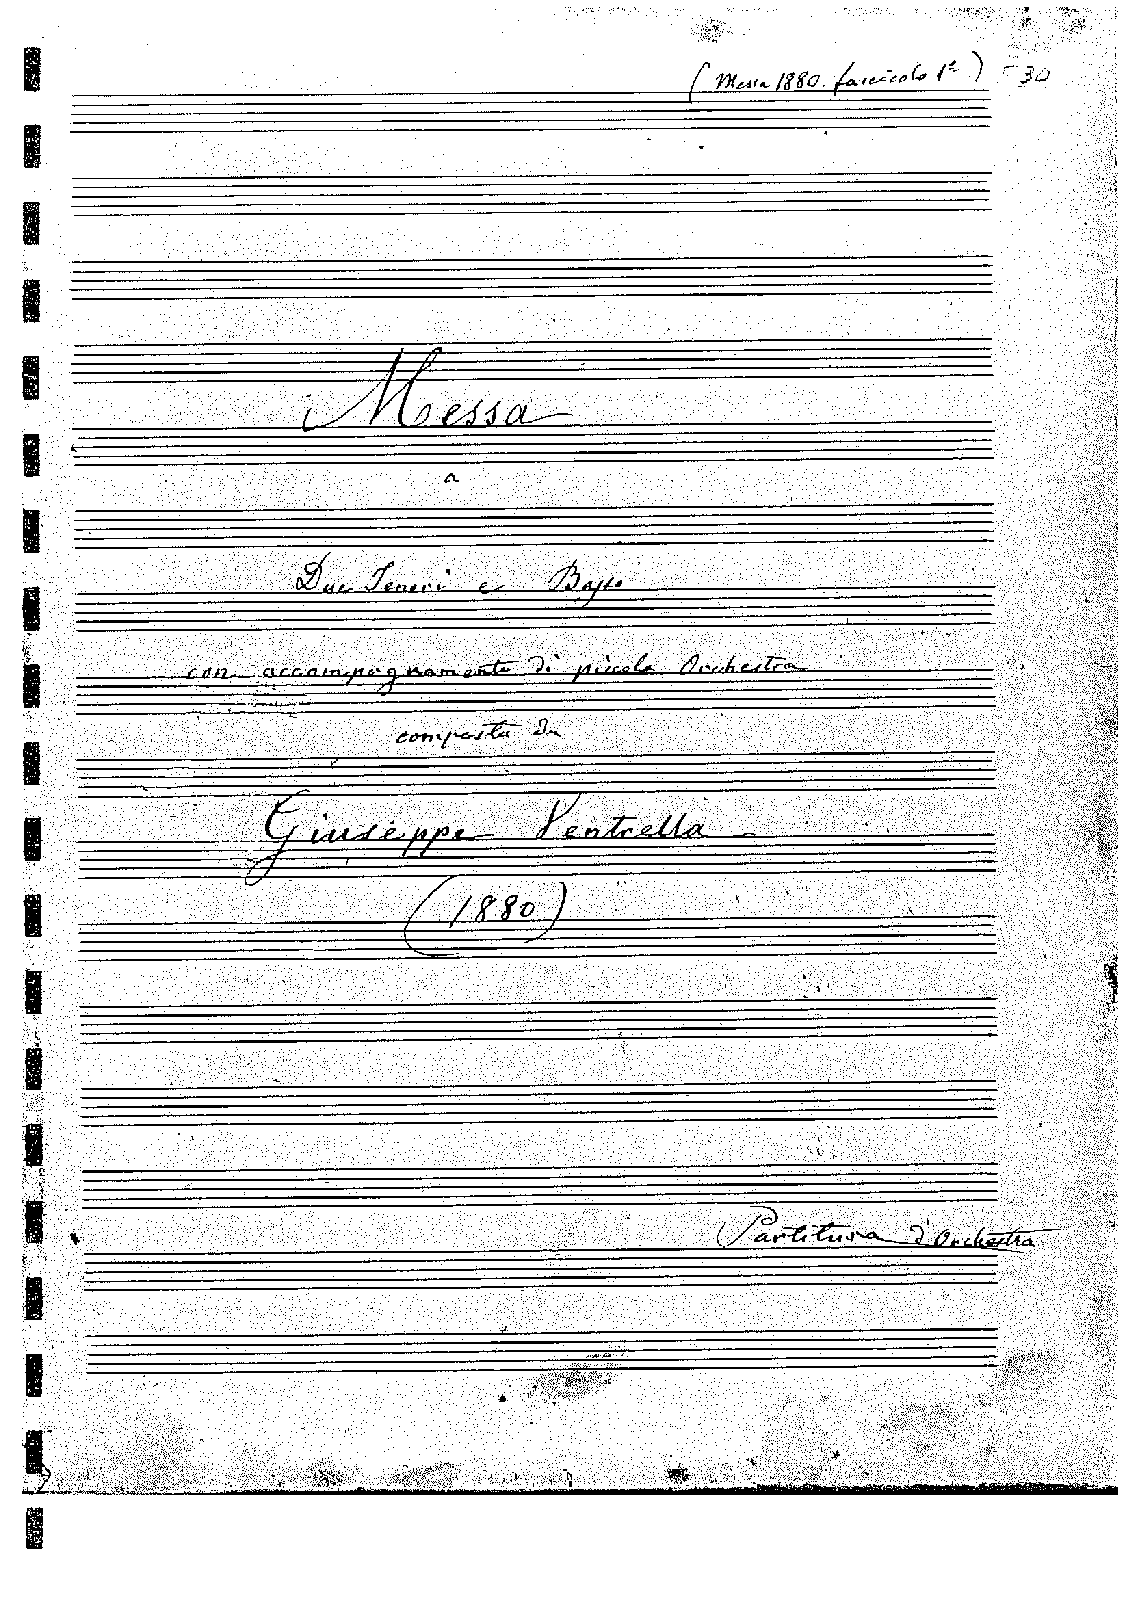 (Messa 1880. fascicolo 1º) 30
Messa
a
Due Tenori e Basso
con accompagnamento di piccola Orchestra
composta da
Giuseppe Ventrella
(1880)
Partitura d'Orchestra